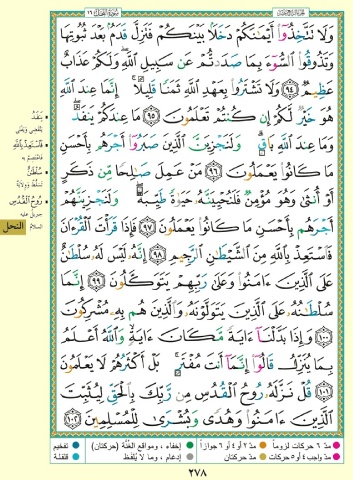 سُورَةُ النَّحْلِ ١٦
وَلَا تَتَّخِذُوٓا۟ أَيْمَٰنَكُمْ دَخَلًۢا بَيْنَكُمْ فَتَزِلَّ قَدَمٌۢ بَعْدَ ثُبُوتِهَا
وَتَذُوقُوا۟ ٱلسُّوٓءَ بِمَا صَدَدتُّمْ عَن سَبِيلِ ٱللَّهِ وَلَكُمْ عَذَابٌ
عَظِيمٌ ٩٤ وَلَا تَشْتَرُوا۟ بِعَهْدِ ٱللَّهِ ثَمَنًا قَلِيلًا إِنَّمَا عِندَ ٱللَّهِ
هُوَ خَيْرٌ لَّكُمْ إِن كُنتُمْ تَعْلَمُونَ ٩٥ مَا عِندَكُمْ يَنفَدُ
وَمَا عِندَ ٱللَّهِ بَاقٍ وَلَنَجْزِيَنَّ ٱلَّذِينَ صَبَرُوٓا۟ أَجْرَهُم بِأَحْسَنِ
مَا كَانُوا۟ يَعْمَلُونَ ٩٦ مَنْ عَمِلَ صَٰلِحًا مِّن ذَكَرٍ
أَوْ أُنثَىٰ وَهُوَ مُؤْمِنٌ فَلَنُحْيِيَنَّهُۥ حَيَوٰةً طَيِّبَةً وَلَنَجْزِيَنَّهُمْ
أَجْرَهُم بِأَحْسَنِ مَا كَانُوا۟ يَعْمَلُونَ ٩٧ فَإِذَا قَرَأْتَ ٱلْقُرْءَانَ
فَٱسْتَعِذْ بِٱللَّهِ مِنَ ٱلشَّيْطَٰنِ ٱلرَّجِيمِ ٩٨ إِنَّهُۥ لَيْسَ لَهُۥ سُلْطَٰنٌ
عَلَى ٱلَّذِينَ ءَامَنُوا۟ وَعَلَىٰ رَبِّهِمْ يَتَوَكَّلُونَ ٩٩ إِنَّمَا
سُلْطَٰنُهُۥ عَلَى ٱلَّذِينَ يَتَوَلَّوْنَهُۥ وَٱلَّذِينَ هُم بِهِۦ مُشْرِكُونَ
١٠٠ وَإِذَا بَدَّلْنَآ ءَايَةً مَّكَانَ ءَايَةٍ وَٱللَّهُ أَعْلَمُ
بِمَا يُنَزِّلُ قَالُوٓا۟ إِنَّمَآ أَنتَ مُفْتَرٍۭ بَلْ أَكْثَرُهُمْ لَا يَعْلَمُونَ
١٠١ قُلْ نَزَّلَهُۥ رُوحُ ٱلْقُدُسِ مِن رَّبِّكَ بِٱلْحَقِّ لِيُثَبِّتَ
ٱلَّذِينَ ءَامَنُوا۟ وَهُدًى وَبُشْرَىٰ لِلْمُسْلِمِينَ ١٠٢
يَنفَدُ
فَٱسْتَعِذْ بِٱللَّهِ
سُلْطَٰنٌ
رُوحُ ٱلْقُدُسِ
جبريل عليه
السلام
النحل
مدّ ٦ حركات لزوماً
مدّ ٢ أو ٤ أو ٦ جوازاً
إخفاء، ومواقع الغُنَّة (حركتان)
تفخيم
مدّ واجب ٤ أو ٥ حركات
مدّ حركتان
إدغام، وما لا يُلفَظ
قلقلة
٢٧٨